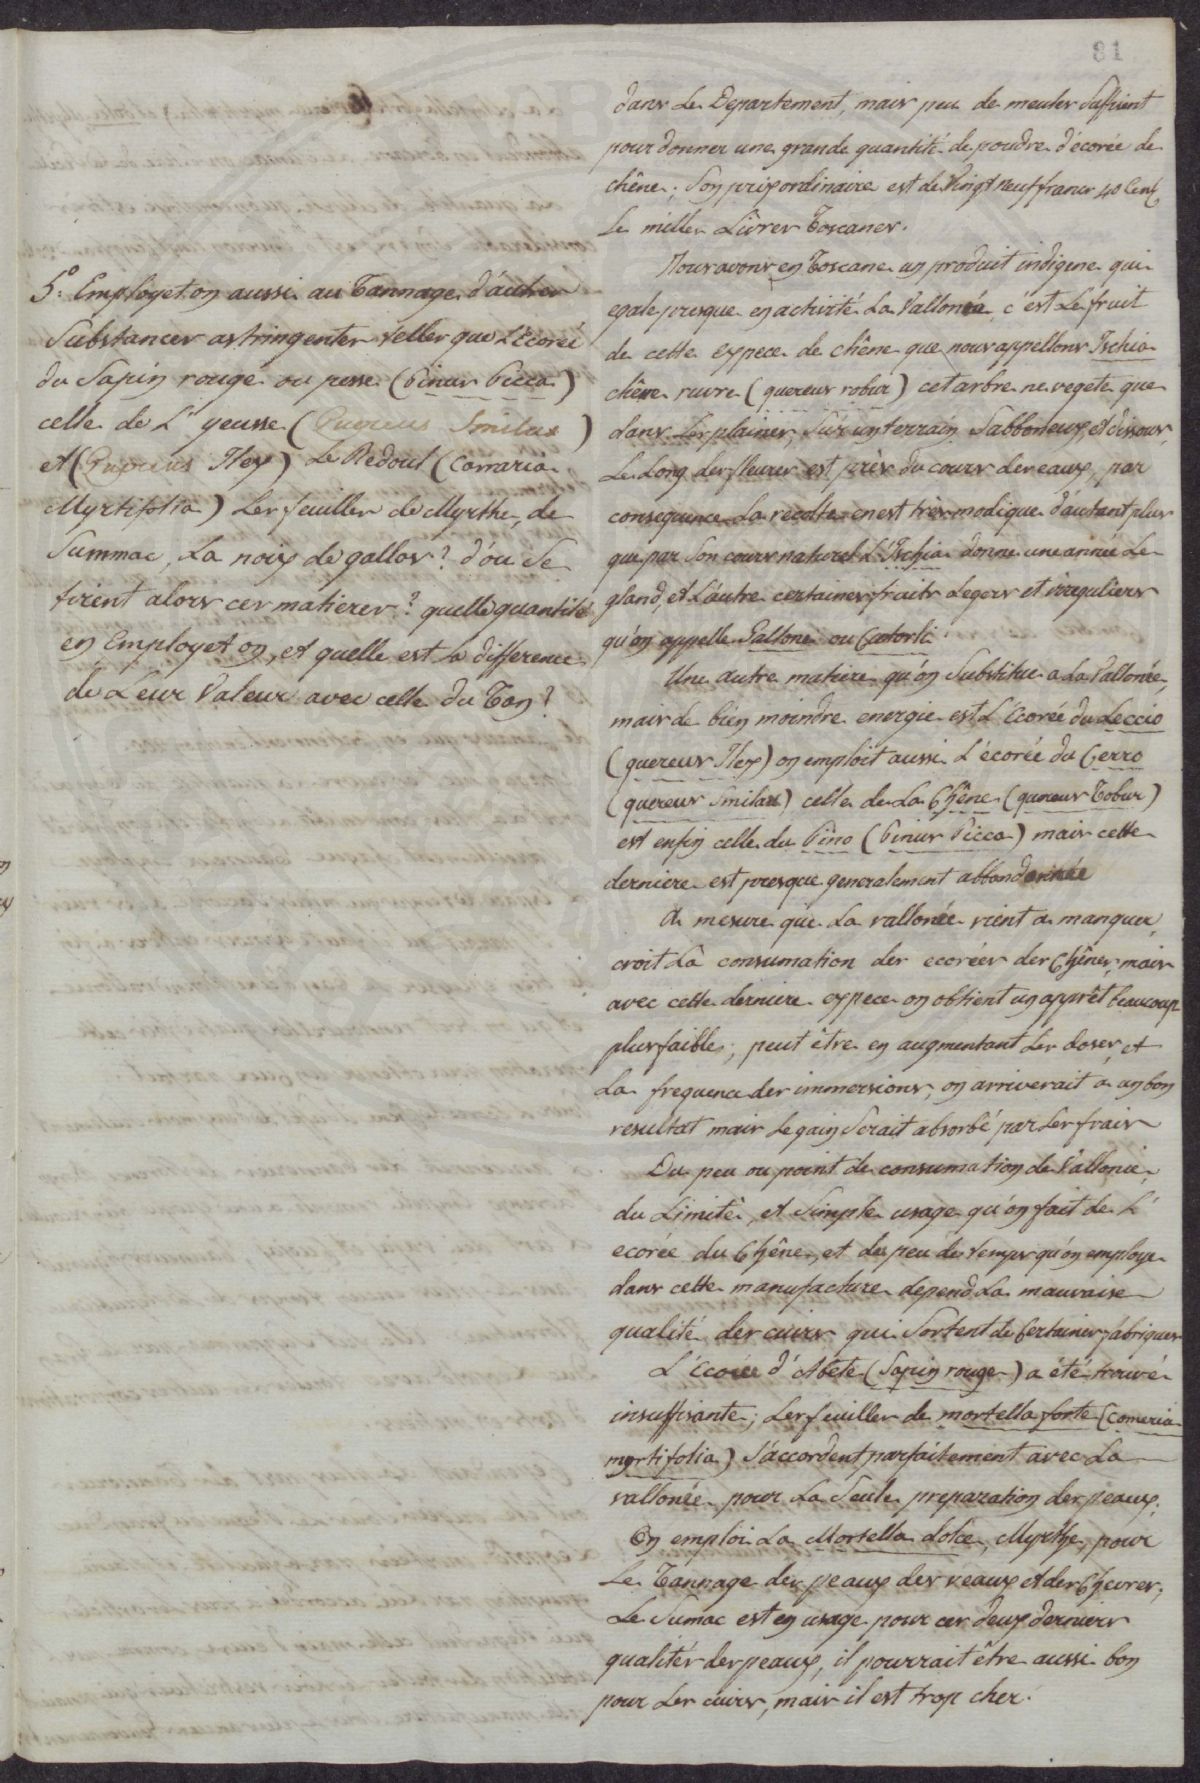 81
5.° Employet on aussi au Tannage d'autres
Substances astringentes telles que L'Ecorée
du Sapin rougé ou pesse (Pinus Picea)
celle de L'yeusse (Quercus Smilax)
et (Quercus Ilex) Le Redoul (Corraria
Myrtifolia) Les feuilles de Myrthe, de
Summac, La noix de gallos? d'ou Se
tirent alors ces matieres? quelle quantité
en Employet on, et quelle est la difference
de Leur Valeur avec celle du Tan?
dans Le Departement, mais peu de meules Suffisent
pour donner une grande quantité de poudre d'écorée de
chêne; Son prix ordinaire est de Vingt neuf francs 40 Cent.
Le milles Livres Toscanes.
Nous avons en Toscane un produit indigene qui
egale presque en activité La Vallonée, c'est Le fruit
de cette expece de chêne que nous appellons Ischia
chêne ruvre (quercus robur) cet arbre ne vegete que
dans Les plaines, Sur un terrain Sabboneux, et dissous,
Le Long des fleuves est près du cours des eaux, par
consequence La récolte en est très modique d'autant plus
que par Son cours naturel L'Ischia donne une année Le
gland, et L'autre certaines fruits Legers et irreguliers
qu'on appelle Gallone ou Castorli.
Une autre matiere qu'on Substitue a La Vallonée,
mais de bien moindre energie est L'Ecorée du Leccio
(quercus Ilex) on emploit aussi L'écorée du Cerro
(quercus Smilax) celle de La Chêne (quercus Robur)
est enfin celle du Pino (Pinus Picea) mais cette
derniere est presque generalement abbandonnée
A mesure que La vallonée vient a manquer,
croit La consumation des ecorées des Chênes, mais
avec cette derniere expece on obtient un apprêt beaucoup
plus faible; peut être en augmentant Les doses, et
La frequence des immersions, on arriverait a un bon
resultat mais Le gain Serait absorbé par Les frais
Du peu ou point de consumation de Vallonée,
du Limité, et Simple usage qu'on fait de L'
ecorée du Chêne, et du peu de temps qu'on employe
dans cette manufacture depend La mauvaise
qualité des cuirs qui Sortent de Certaines fabriques
L'Ecorée d'Abete (Sapin rouge) a été trouvé
insuffisante; Les feuilles de mortella forte (Comeria
myrtifolia) S'accordent parfaitement avec La
vallonée pour La Seule preparation des peaux.
On emploi La Mortella dolce, Myrthe, pour
Le Tannage des peaux des veaux et des Chevres;
Le Sumac est en usage pour ces deux derniers
qualités des peaux, il pourrait être aussi bon
pour Les cuirs, mais il est trop cher.